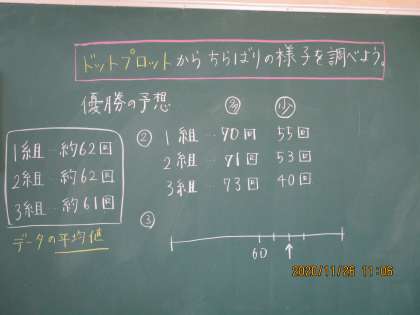 ドットプロットからちらばりの様子を調べよう。
優勝の予想
多 少
② 1組…70回 55回
2組…71回 53回
3組…73回 40回
1組…約62回
2組…約62回
3組…約61回
データの平均値
③
60
2020/11/26 11:06